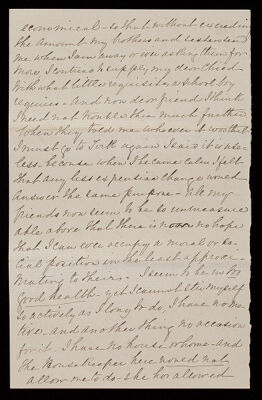 economical - so that without exceeding
the amount my brothers and sisters lend
me when I am away or even asking them for
more, I continue supply my dear Child
with what little requisites a school boy
requires - And now dear friend I think
I need not trouble thee much further
When they told me whoever it was that
I must go to York again I said it was use-
less because when I became calm I felt
that any less expensive change would
answer the same purpose - All my
friends now seem to be so unmeasure
able above that there is now no hope
that I can ever occupy a moral or so-
cial position in the least approxi-
mating to theirs. I seem to be in too
good health - yet I cannot stir myself
so actively as I long to do, I have no mo
tive - and another thing no occasion
for it. I have no house or home - and
the Housekeeper here would not
allow me to do - she has allowed